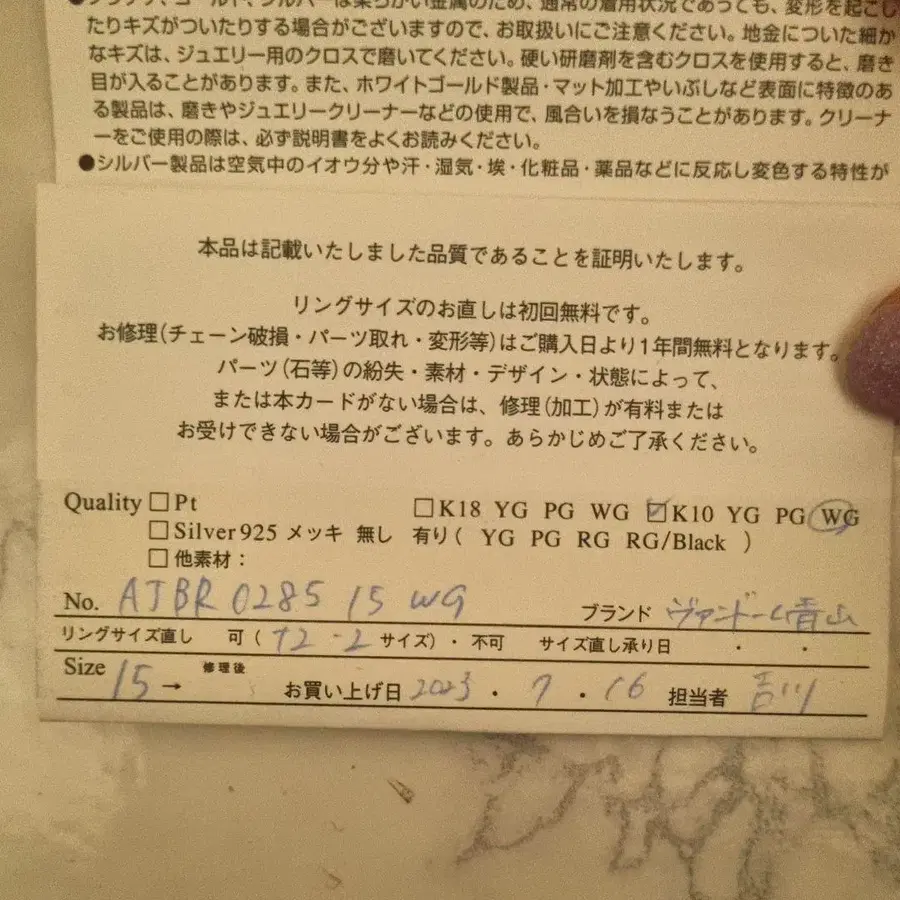 ●プラチナ、ゴールド、シルバーは柔らかい金属のため、通常の着用状況であっても、変形を起こし
たりキズがついたりする場合がございますので、お取扱いにご注意ください。地金についた細か
なキズは、ジュエリー用のクロスで磨いてください。硬い研磨剤を含むクロスを使用すると、磨き
目が入ることがあります。また、ホワイトゴールド製品・マット加工やいぶしなど表面に特徴のあ
る製品は、磨きやジュエリークリーナーなどの使用で、風合いを損なうことがあります。クリーナ
ーをご使用の際は、必ず説明書をよくお読みください。
●シルバー製品は空気中のイオウ分や汗・湿気・埃・化粧品・薬品などに反応し変色する特性が
本品は記載いたしました品質であることを証明いたします。
リングサイズのお直しは初回無料です。
お修理(チェーン破損・パーツ取れ・変形等)はご購入日より1年間無料となります。
パーツ(石等)の紛失・素材・デザイン・状態によって、
または本カードがない場合は、修理(加工)が有料または
お受けできない場合がございます。あらかじめご了承ください。
Quality □Pt □K18 YG PG WG ☑K10 YG PG WG
□Silver925 メッキ 無し 有り( YG PG RG RG/Black )
□他素材：
No. AJBR 0285 15 WG ブランド ヴァンドーム青山
リングサイズ直し 可( +2 -2 サイズ)・不可 サイズ直し承り日 ・ ・
Size 15 → 修理後 お買い上げ日 2023 ・ 7 ・ 16 担当者 吉川